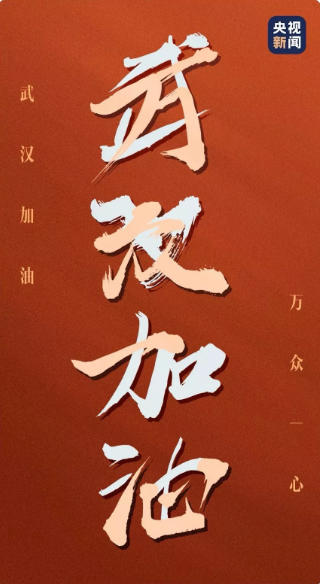 央视
新闻
武汉加油
武汉加油
万众一心